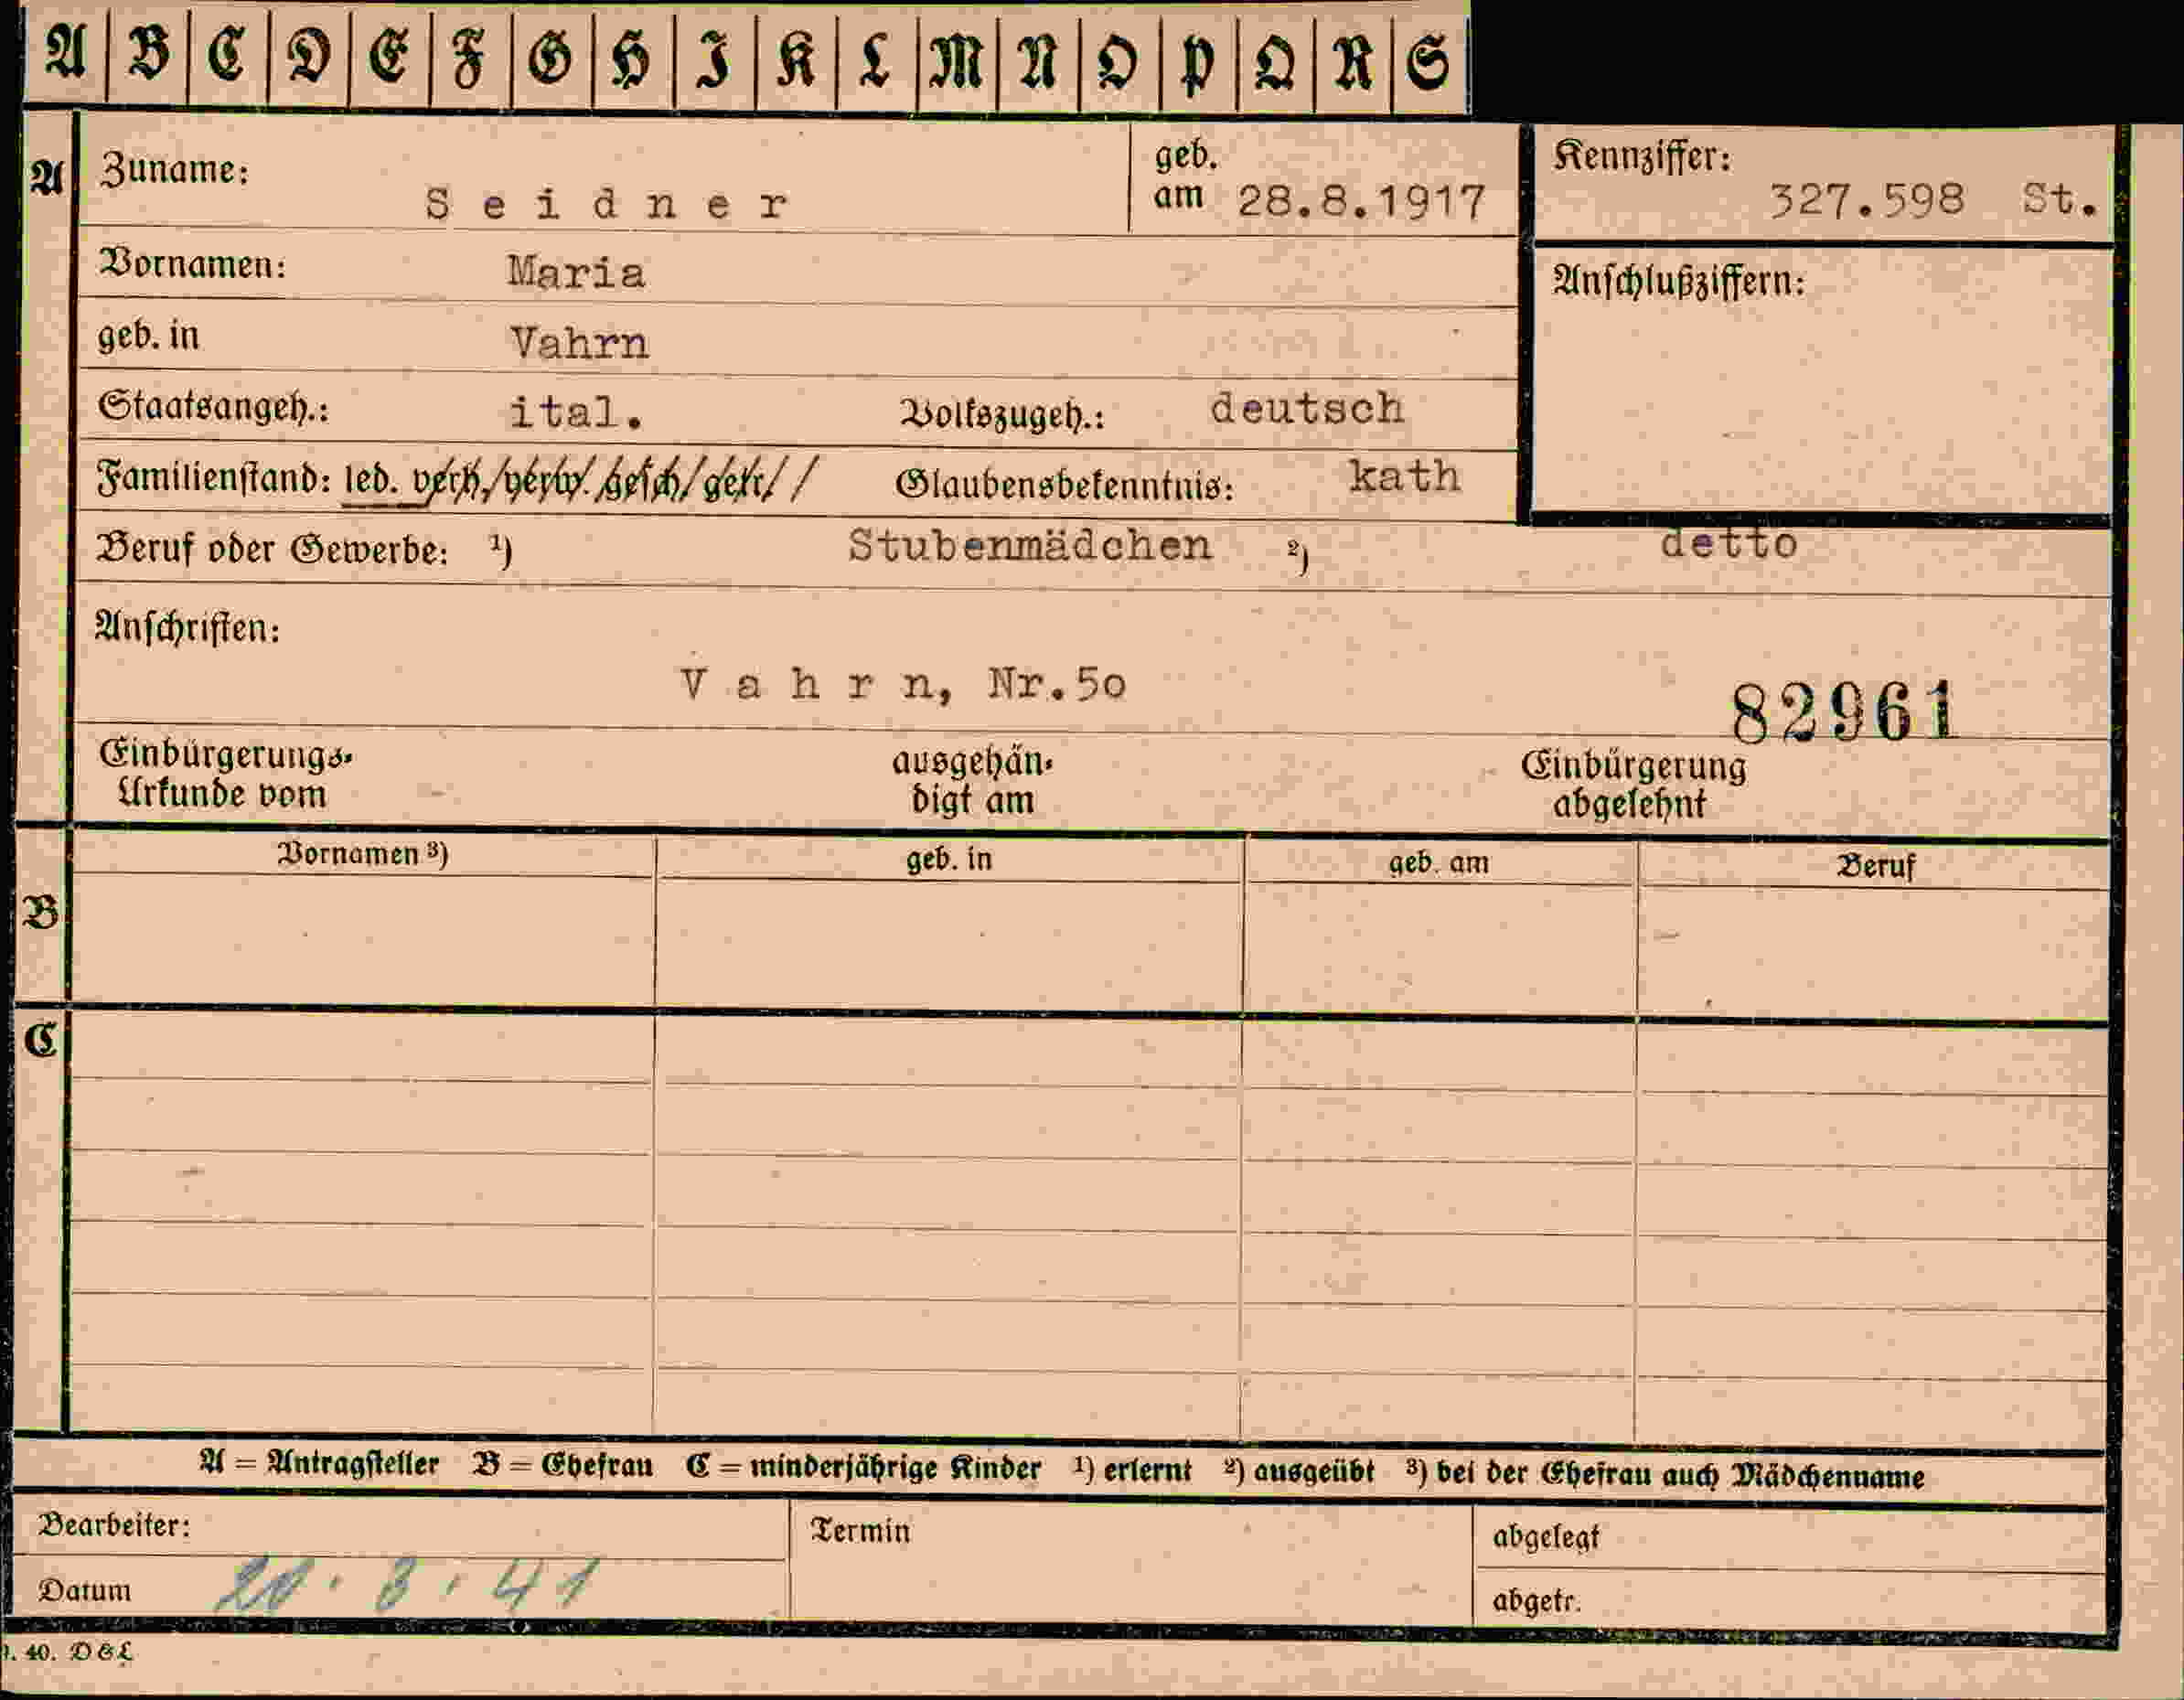 A B C D E F G H I K L M N O P Q R S
A Zuname: Seidner geb. am 28.8.1917 Kennziffer: 327.598 St.
Vornamen: Maria Anschlußziffern:
geb. in Vahrn
Staatsangeh.: ital. Volkszugeh.: deutsch
Familienstand: led. verh. verw. gesch. getr. Glaubensbekenntnis: kath
Beruf oder Gewerbe: ¹) Stubenmädchen ²) detto
Anschriften:
Vahrn, Nr.50
82961
Einbürgerungs-Urkunde vom ausgehändigt am Einbürgerung abgelehnt
B Vornamen ³) geb. in geb. am Beruf
C
A = Antragsteller B = Ehefrau C = minderjährige Kinder ¹) erlernt ²) ausgeübt ³) bei der Ehefrau auch Mädchenname
Bearbeiter: Termin abgelegt
Datum 41 abgetr.
40. D&L